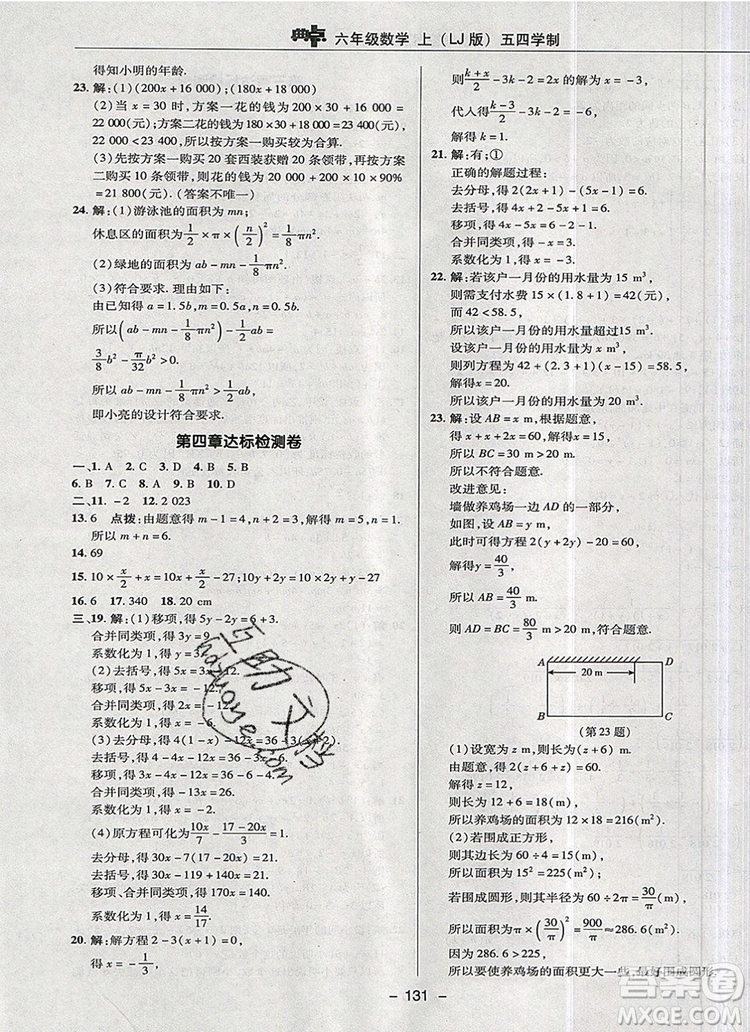 典点 六年级数学 上(LJ版) 五四学制
得知小明的年龄.
23. 解:(1)(200x+16 000);(180x+18 000)
(2)当 x=30时,方案一花的钱为200×30+16 000=
22 000(元);方案二花的钱为180×30+18 000=23 400(元),
22 000<23 400,所以按方案一购买较为合算.
(3)先按方案一购买20套西装获赠20条领带,再按方案
二购买10条领带,所花的钱为 200×20+200×10×90%
=21 800(元).(答案不唯一)
24. 解:(1)游泳池的面积为 mn;
休息区的面积为 1/2 ×π×(n/2)²=1/8 πn².
(2)绿地的面积为 ab-mn-1/8 πn².
(3)符合要求. 理由如下:
由已知得 a=1.5b,m=0.5a,n=0.5b.
所以(ab-mn-1/8 πn²)-1/2 ab=
3/8 b²-π/32 b²>0.
所以 ab-mn-1/8 πn²>1/2 ab.
即小亮的设计符合要求.
第四章达标检测卷
一、1. A 2. C 3. D 4. B 5. B
6. B 7. B 8. A 9. B 10. D
二、11. -2 12. 2 023
13. 6 点拨:由题意得 m-1=4,n+2=2,解得 m=5,n=0.
所以 m+n=6.
14. 69
15. 10×x/2+x=x/2×10y+2y=10x+2x-27
16. 6 17. 340 18. 20 cm
三、19. 解:(1)移项,得5y-2y=6+3.
合并同类项,得 3y=9.
系数化为1,得 y=3.
(2)去括号,得 5x=3x-12.
移项,得 5x-3x=-12.
合并同类项,得 2x=-12.
系数化为1,得 x=-6.
(3)去分母,得 4(1-x)-12x=36-3(x+2).
去括号,得 4-4x-12x=36-3x-6.
移项,得 -4x-12x+3x=36-6-4.
合并同类项,得 -13x=26.
系数化为1,得 x=-2.
(4)原方程可化为 10x/7-(17-20x)/3=1.
去分母,得 30x-7(17-20x)=21.
去括号,得 30x-119+140x=21.
移项、合并同类项,得 170x=140.
系数化为1,得 x=14/17.
20. 解:解方程 2-3(x+1)=0,
得 x=-1/3,
则 (k+x)/2-3k-2=2x的解为 x=-3,
代人得 (k-3)/2-3k-2=-6,
解得 k=1.
21. 解:有;①
正确的解题过程:
去分母,得 2(2x+1)-(5x-1)=6.
去括号,得 4x+2-5x+1=6.
移项,得 4x-5x=6-1-2.
合并同类项,得 -x=3.
系数化为1,得 x=-3.
22. 解:若该户一月份的用水量为15 m³,
则需支付水费15×(1.8+1)=42(元),
而42<58.5,
所以该户一月份的用水量超过15 m³.
设该户一月份的用水量为 x m³,
则列方程为42+(2.3+1)(x-15)=58.5,
解得 x=20.
所以该户一月份的用水量为20 m³.
23. 解:设 AB=x m,根据题意,
得 x+x+2x=60,解得 x=15,
所以 BC=30 m>20 m,
所以不符合题意.
改进意见:
墙做养鸡场一边 AD 的一部分,
如图,设 AB=y m,
此时可得方程 2(2y+y)+2y-20=60,
解得 y=40/3,
所以 AB=40/3 m,
则 AD=BC=80/3 m>20 m,符合题意.
A D
20 m
B C
(第23题)
(1)设宽为 z m,则长为(z+6)m,
由题意,得 2(z+z+6)=60,
解得 z=12,
则长为 z+6=18,
所以养鸡场的面积为12×18=216(m²).
(2)若围成正方形,
则其边长为60÷4=15(m),
面积为15²=225(m²),
若围成圆形,则其半径为60/2π=30/π(m),
面积为π×(30/π)²=900/π≈286.6(m²),
因为286.6>225,
所以要使养鸡场的面积更大一些,最好围成圆形.
- 131 -
互助文档
hdzuoye.com
答案圈
MXQE.COM